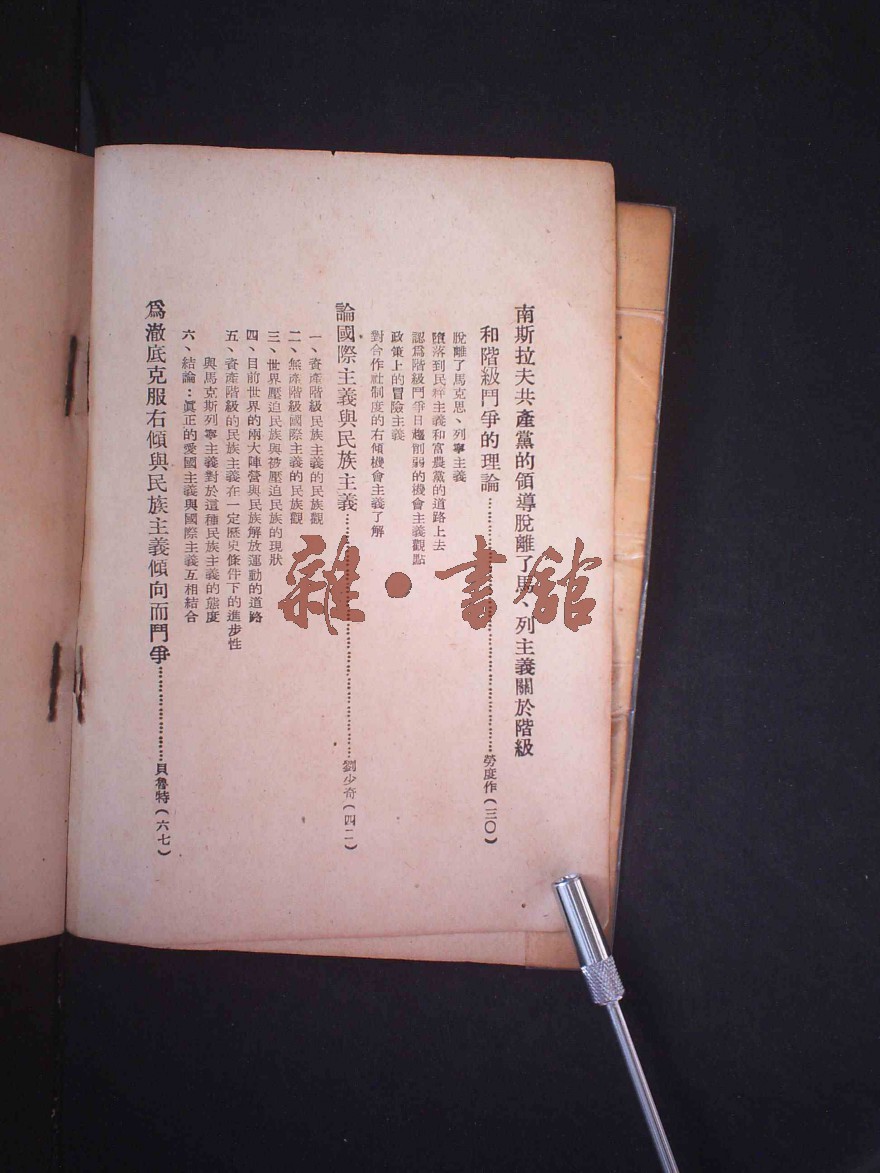 南斯拉夫共產黨的領導脫離了馬、列主義關於階級
和階級鬥爭的理論……勞度作(三〇)
脫離了馬克思、列寧主義
墮落到民粹主義和富農黨的道路上去
認爲階級鬥爭日趨削弱的機會主義觀點
政策上的冒險主義
對合作社制度的右傾機會主義了解
論國際主義與民族主義……劉少奇(四二)
一、資產階級民族主義的民族觀
二、無產階級國際主義的民族觀
三、世界壓迫民族與被壓迫民族的現狀
四、目前世界的兩大陣營與民族解放運動的道路
五、資產階級的民族主義在一定歷史條件下的進步性
與馬克斯列寧主義對於這種民族主義的態度
六、結論：眞正的愛國主義與國際主義互相結合
爲澈底克服右傾與民族主義傾向而鬥爭……貝魯特(六七)
雜·書館